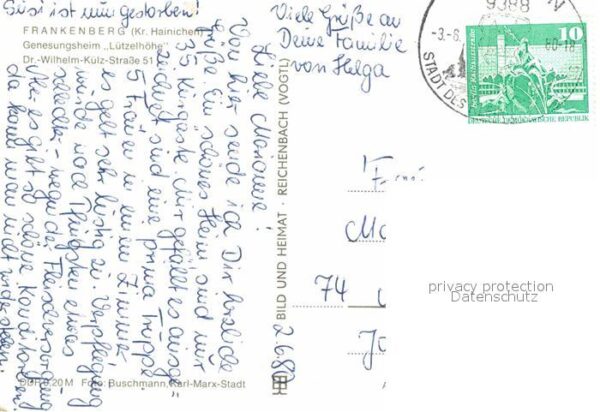 Susi ist nun gestorben!
FRANKENBERG (Kr. Hainichen)
Genesungsheim „Lützelhöhe"
Dr.-Wilhelm-Külz-Straße 51
Viele Grüße an
Deine Familie
von Helga
2.6.80
Liebe Marianne!
Von hier sende ich Dir herzliche
Grüße. Ein schönes Heim sind nur
35 Kurgäste. Mir gefällt es ausge
zeichnet sind eine prima Truppe
5 Frauen in einem Zimmer
es geht sehr lustig zu. Verpflegung
wurde nach Pfingsten etwas
schlechter - wegen der Fleischversorgung
aber es gibt so schöne Konditoreien
da kann man nicht widerstehen.
BILD UND HEIMAT · REICHENBACH (VOGTL)
DDR 0,20 M Foto: Buschmann, Karl-Marx-Stadt
9388
-3.-6.
80-18
STADT DES
10
DEUTSCHE DEMOKRATISCHE REPUBLIK
74
privacy protection
Datenschutz